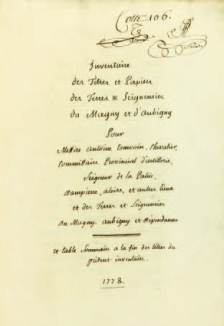 Cotte 106.
Inventaire
des Titres et Papiers
des Terres & Seigneuries
du Magny et d'Aubigny
Pour
Messire Antoine Chevalier,
Commissaire Provincial d'artillerie,
Seigneur de la
dampierre, et autres lieux
et des Terres et Seigneuries
du Magny Aubigny et dépendances
et table Sommaire a la fin des titres du
présent inventaire.
1778.